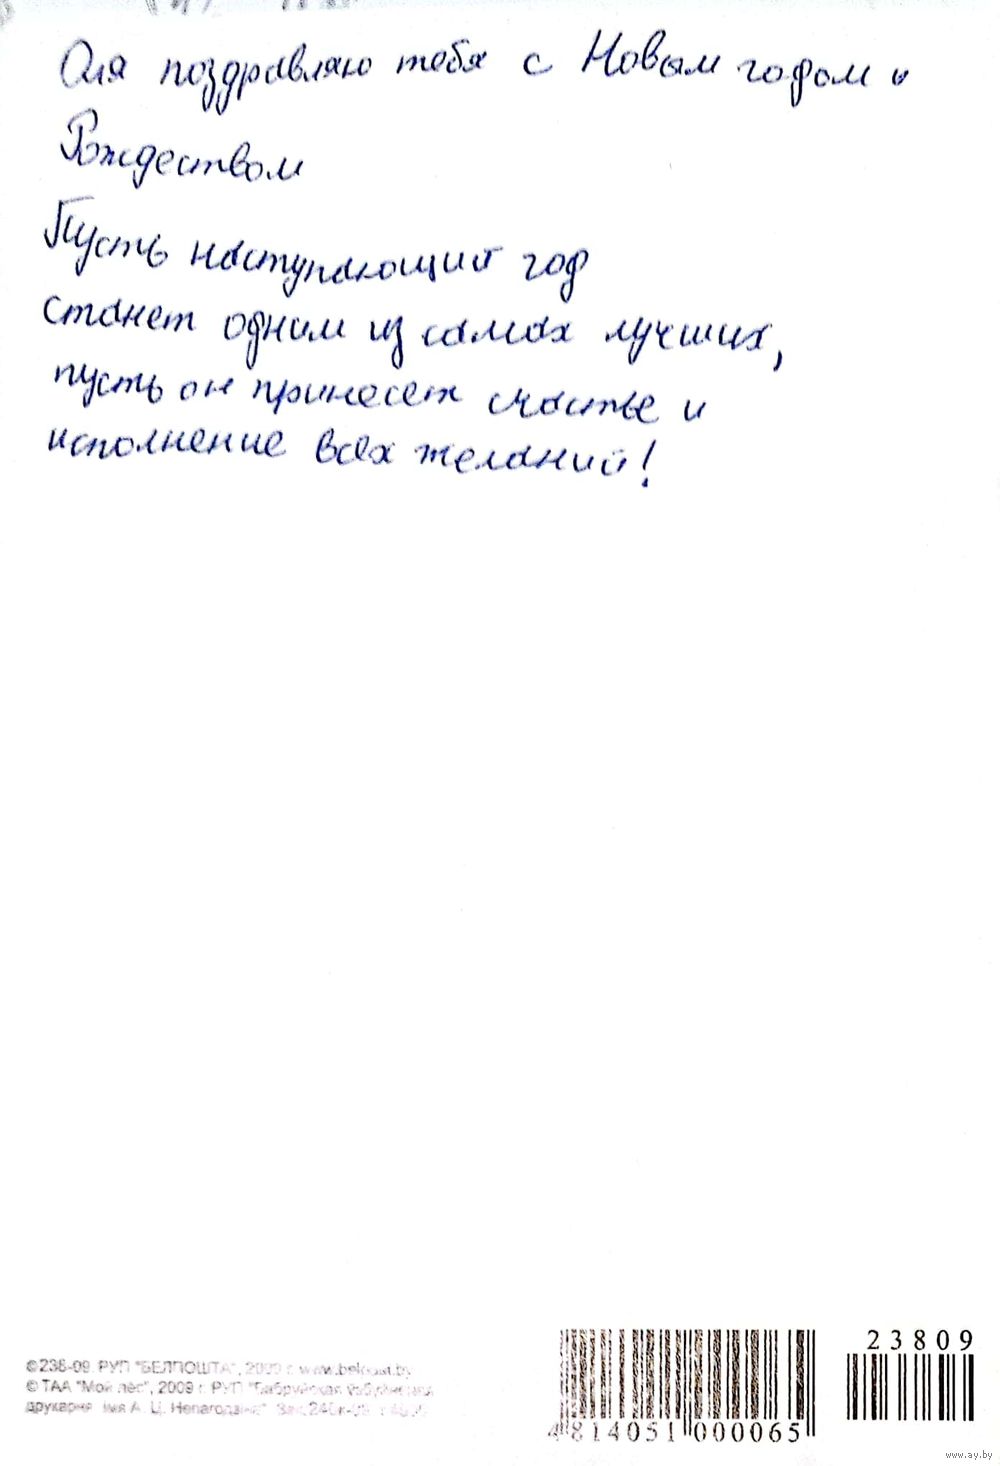 Оля поздравляю тебя с Новым годом и
Рождеством
Пусть наступающий год
станет одним из самых лучших,
пусть он принесет счастье и
исполнение всех желаний!
23809
©238-09. РУП "БЕЛПОШТА", 2009 г. www.belpost.by
© ТАА "Мой лёс", 2009 г. РУП "Бабруйская
друкарня імя А. Ц. Непагодзіна"
4814051000065
www.ay.by